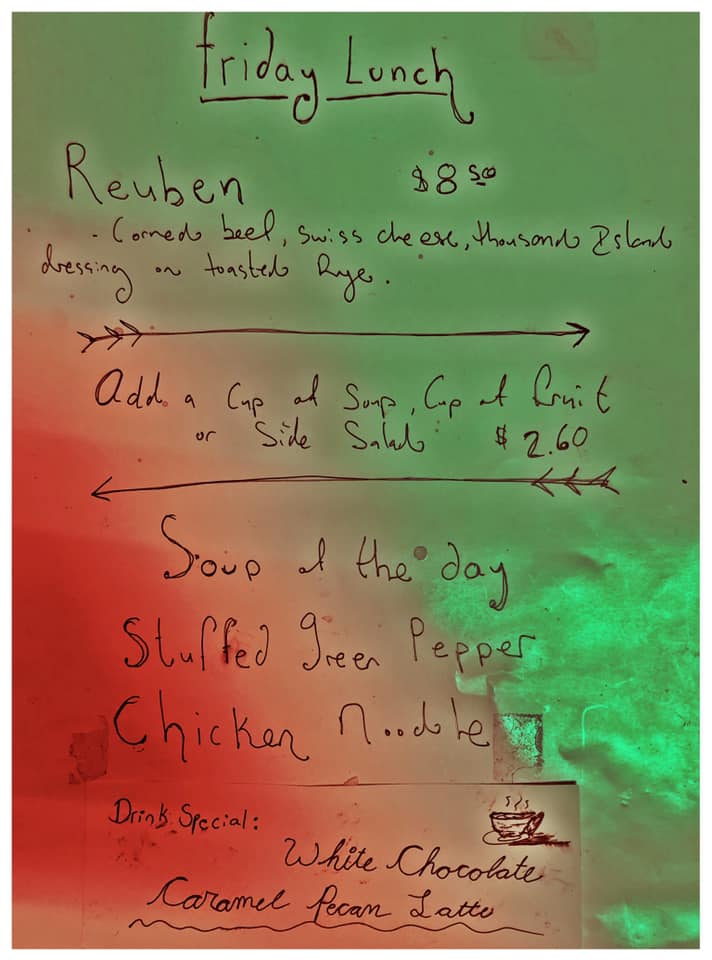 Friday Lunch
Reuben $8.50
- Corned beef, swiss cheese, thousand Island
dressing on toasted Rye.
Add a Cup of Soup, Cup of fruit
or Side Salad $2.60
Soup of the day
Stuffed green Pepper
Chicken Noodle
Drink Special:
White Chocolate
Caramel Pecan Latte